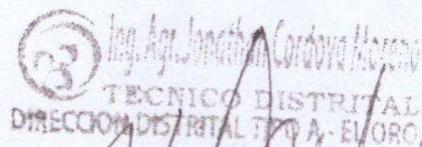 Ing. Agr. Jonathan Cordova Moreno
TECNICO DISTRITAL
DIRECCION DISTRITAL TIPO A - EL ORO